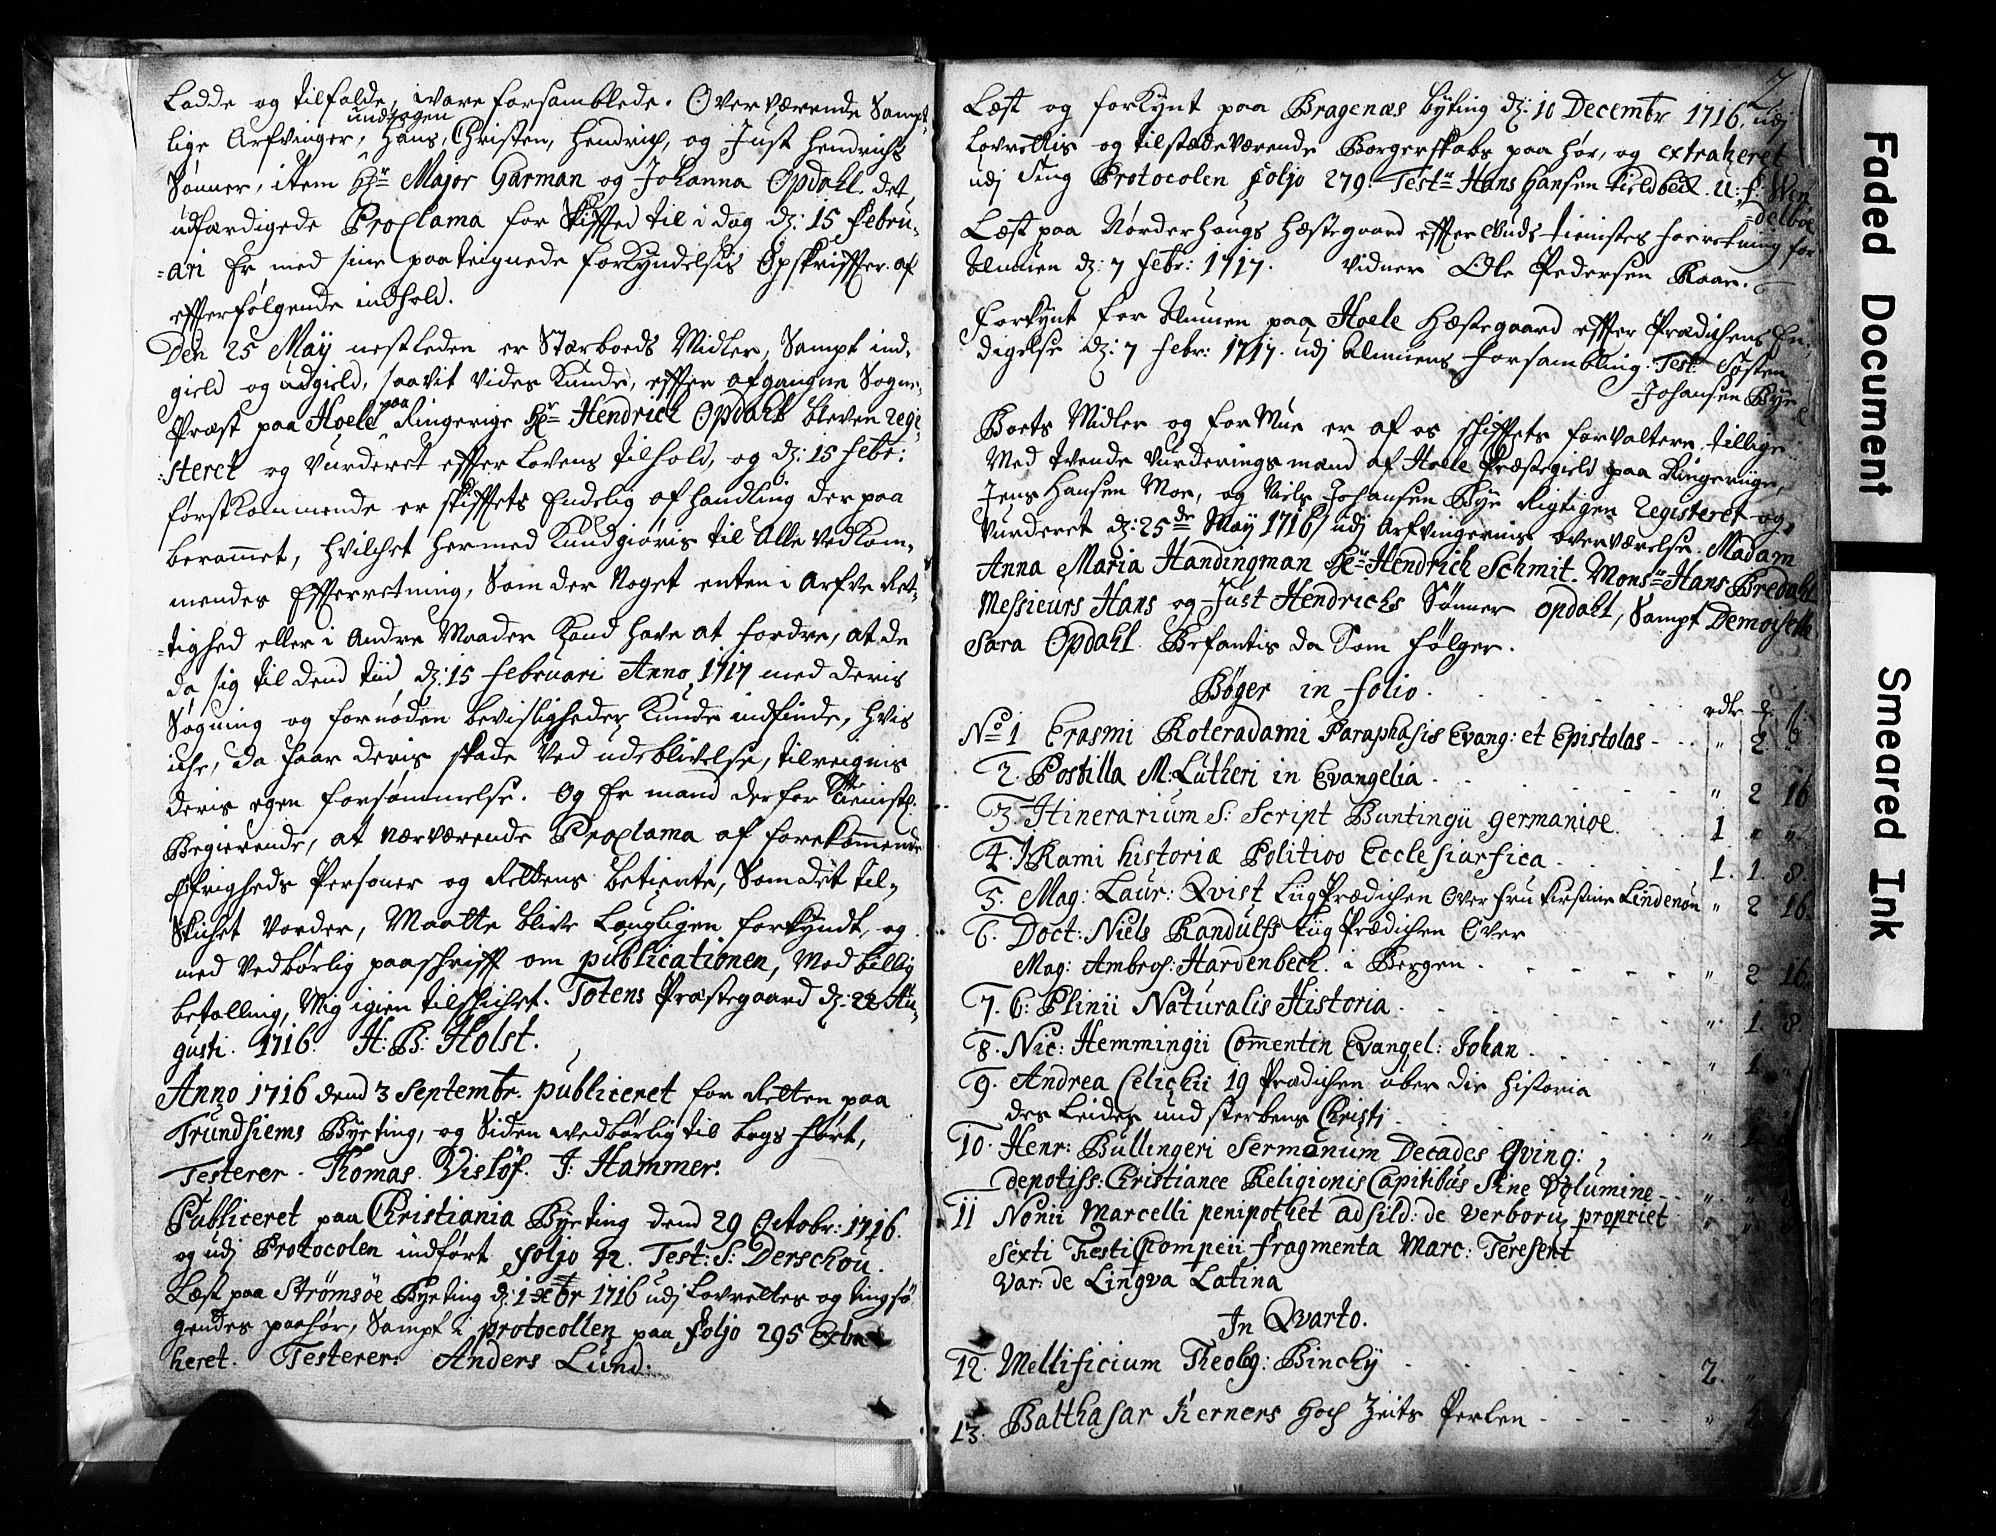 Ladde og tilfalde, ware forsamblede. Overværende Sampt-
lige Arfvinger, undtagen Hans, Christen, Hendrich, og Just Hendrichs
Sønner, item Hr Major Garman og Johanna Opdahl. det
udfærdigede Proclama for Skifftet til i dag d: 15 Febru-
=ari Er med sine paateignede forkyndelsis Opskriffter af
effterfølgende indhold.
Den 25 Maÿ nestleden er Stærboeds Midler, Sampt ind-
gield og udgield, saavit vides Kunde, effter afgangne Sogne-
Præst paa Hoele paa Ringerige Hr Hendrich Opdahl bleven regi-
:steret og Vurderet effter Lovens tilhold, og d: 15 Febr:
førstkommende er skifftets Endelig afhandling der paa
beramet, hvilchet hermed Kundgiøris til Alle vedkom-
mendes Effterretning, Som der Noget enten i Arfve Ret-
=tighed eller i Andre Maader Kand have at fordre, at de
da sig til dend tiid d: 15 Februari Anno 1717 med deris
Søgning og fornøden bevisligheder Kunde indfinde, hvis
iche, da haar deris skade ved udeblivelse, tilreignis
deris egen forsømmelse. Og Er mand derfor tienistl:
Begierende, at nærværende Proclama af forekommende
Øfrigheds Personer og Rettens betiente, Som det til-
Skichet vorder, Maatte blive Lougligen forkyndt, og
med vedbørlig paaschrifft om publicationen, Mod billig
betalling, Mig igien tilschichet. Totens Præstegaard d: 22 Au-
gusti. 1716. H: B: Holst.
Anno 1716 dend 3 Septembr. publiceret for Retten paa
Trundhiems Byeting, og Siden vedbørlig til bogs ført,
Testerer. Thomas Visløf. J: Hammer.
Publiceret paa Christiania Byeting dend 29 Octobr: 1716.
og udj Protocolen indført foljo 42. Test: S: Derschou.
Læst paa Strømsøe Byeting d: 1 Xbr 1716 udj Lovrettes og tingsø
gendes paahør, Sampt i protocollen paa foljo 295 Extra
heret. Testerer. Anders Lund.
2
Læst og forkynt paa Bragenæs byting d: 10 Decembr 1716. udj
Lovrettis og tilstædeværende Borgerskabs paa hør, og extraheret
udj ting Protocolen foljo 279. Testr Hans Hansen Fieldbeck. U: f: Wen
=delboe
Læst paa Nørderhougs Hæstegaard effter Guds tienistes forretning for
Almuen d: 7 Febr: 1717. Vidner Ole Pedersen Raae.
Forkynt for Almuen paa Hoele Hæstegaard effter Prædichens En-
digelse d: 7 Febr: 1717. udj Almuens forsambling. Test Tosten
Johansen Bye
Boets Midler og formue er af os skifftets forvaltere, tillige
Med tvende Vurderings mænd af Hoele Præstegield paa Ringeriige,
Jens Hansen Moe, og Niels Johansen Bye Rigtigen registeret og
Vurderet d: 25de Maÿ 1716, udj Arfvingernis overværelse. Madam
Anna Maria Handingman Hr Hendrich Schmit. Monsr Hans Bredahl
Messieurs Hans og Just Hendrichs Sønner Opdahl, Sampt Demoiselle
Sara Opdahl. Befantis da Som følger.
Bøger in folio.
rdr
No 1 Erasmi Roteradami Paraphasis Evang: et Epistolas - " 2
2. Postilla M: Lutheri in Evangelia. " 2 16
3. Itinerarium S: Script Buntingii germanice. 1 " "
4. J Rami historiæ Politico Ecclesiarsica 1. 1. 8.
5. Mag: Laur: Qvist Liig Prædichen over fru Kirstine Lindenou " 2 16.
6. Doct: Niels Randulfs Liig Prædichen Over
Mag: Ambros: Hardenbech i Bergen. " 2 16.
7. C: Plinii Naturalis Historia. " 1. 8
8. Nic: Hemmingii Comentin Evangel: Johan. " 1. "
9. Andrea Celichii 19 Prædichen über die historia
des Leides und sterbens Christi " 1
10. Henr: Bullingeri Sermonum Decades Qving:
depotiss: Christianee Religionis Capitibus Sine Volumine " "
11 Nonii Marcelli penipothet adfild: de verboru propriet " "
Sexti Festi Pompeii fragmenta Marc: Terefent
Var: de Lingva Latina
In Qvarto.
12. Mellificium Theolog: Binchÿ 2. "
13. Balthasar Kerners Hoch Zeits Perlen "
Faded Document
Smeared Ink